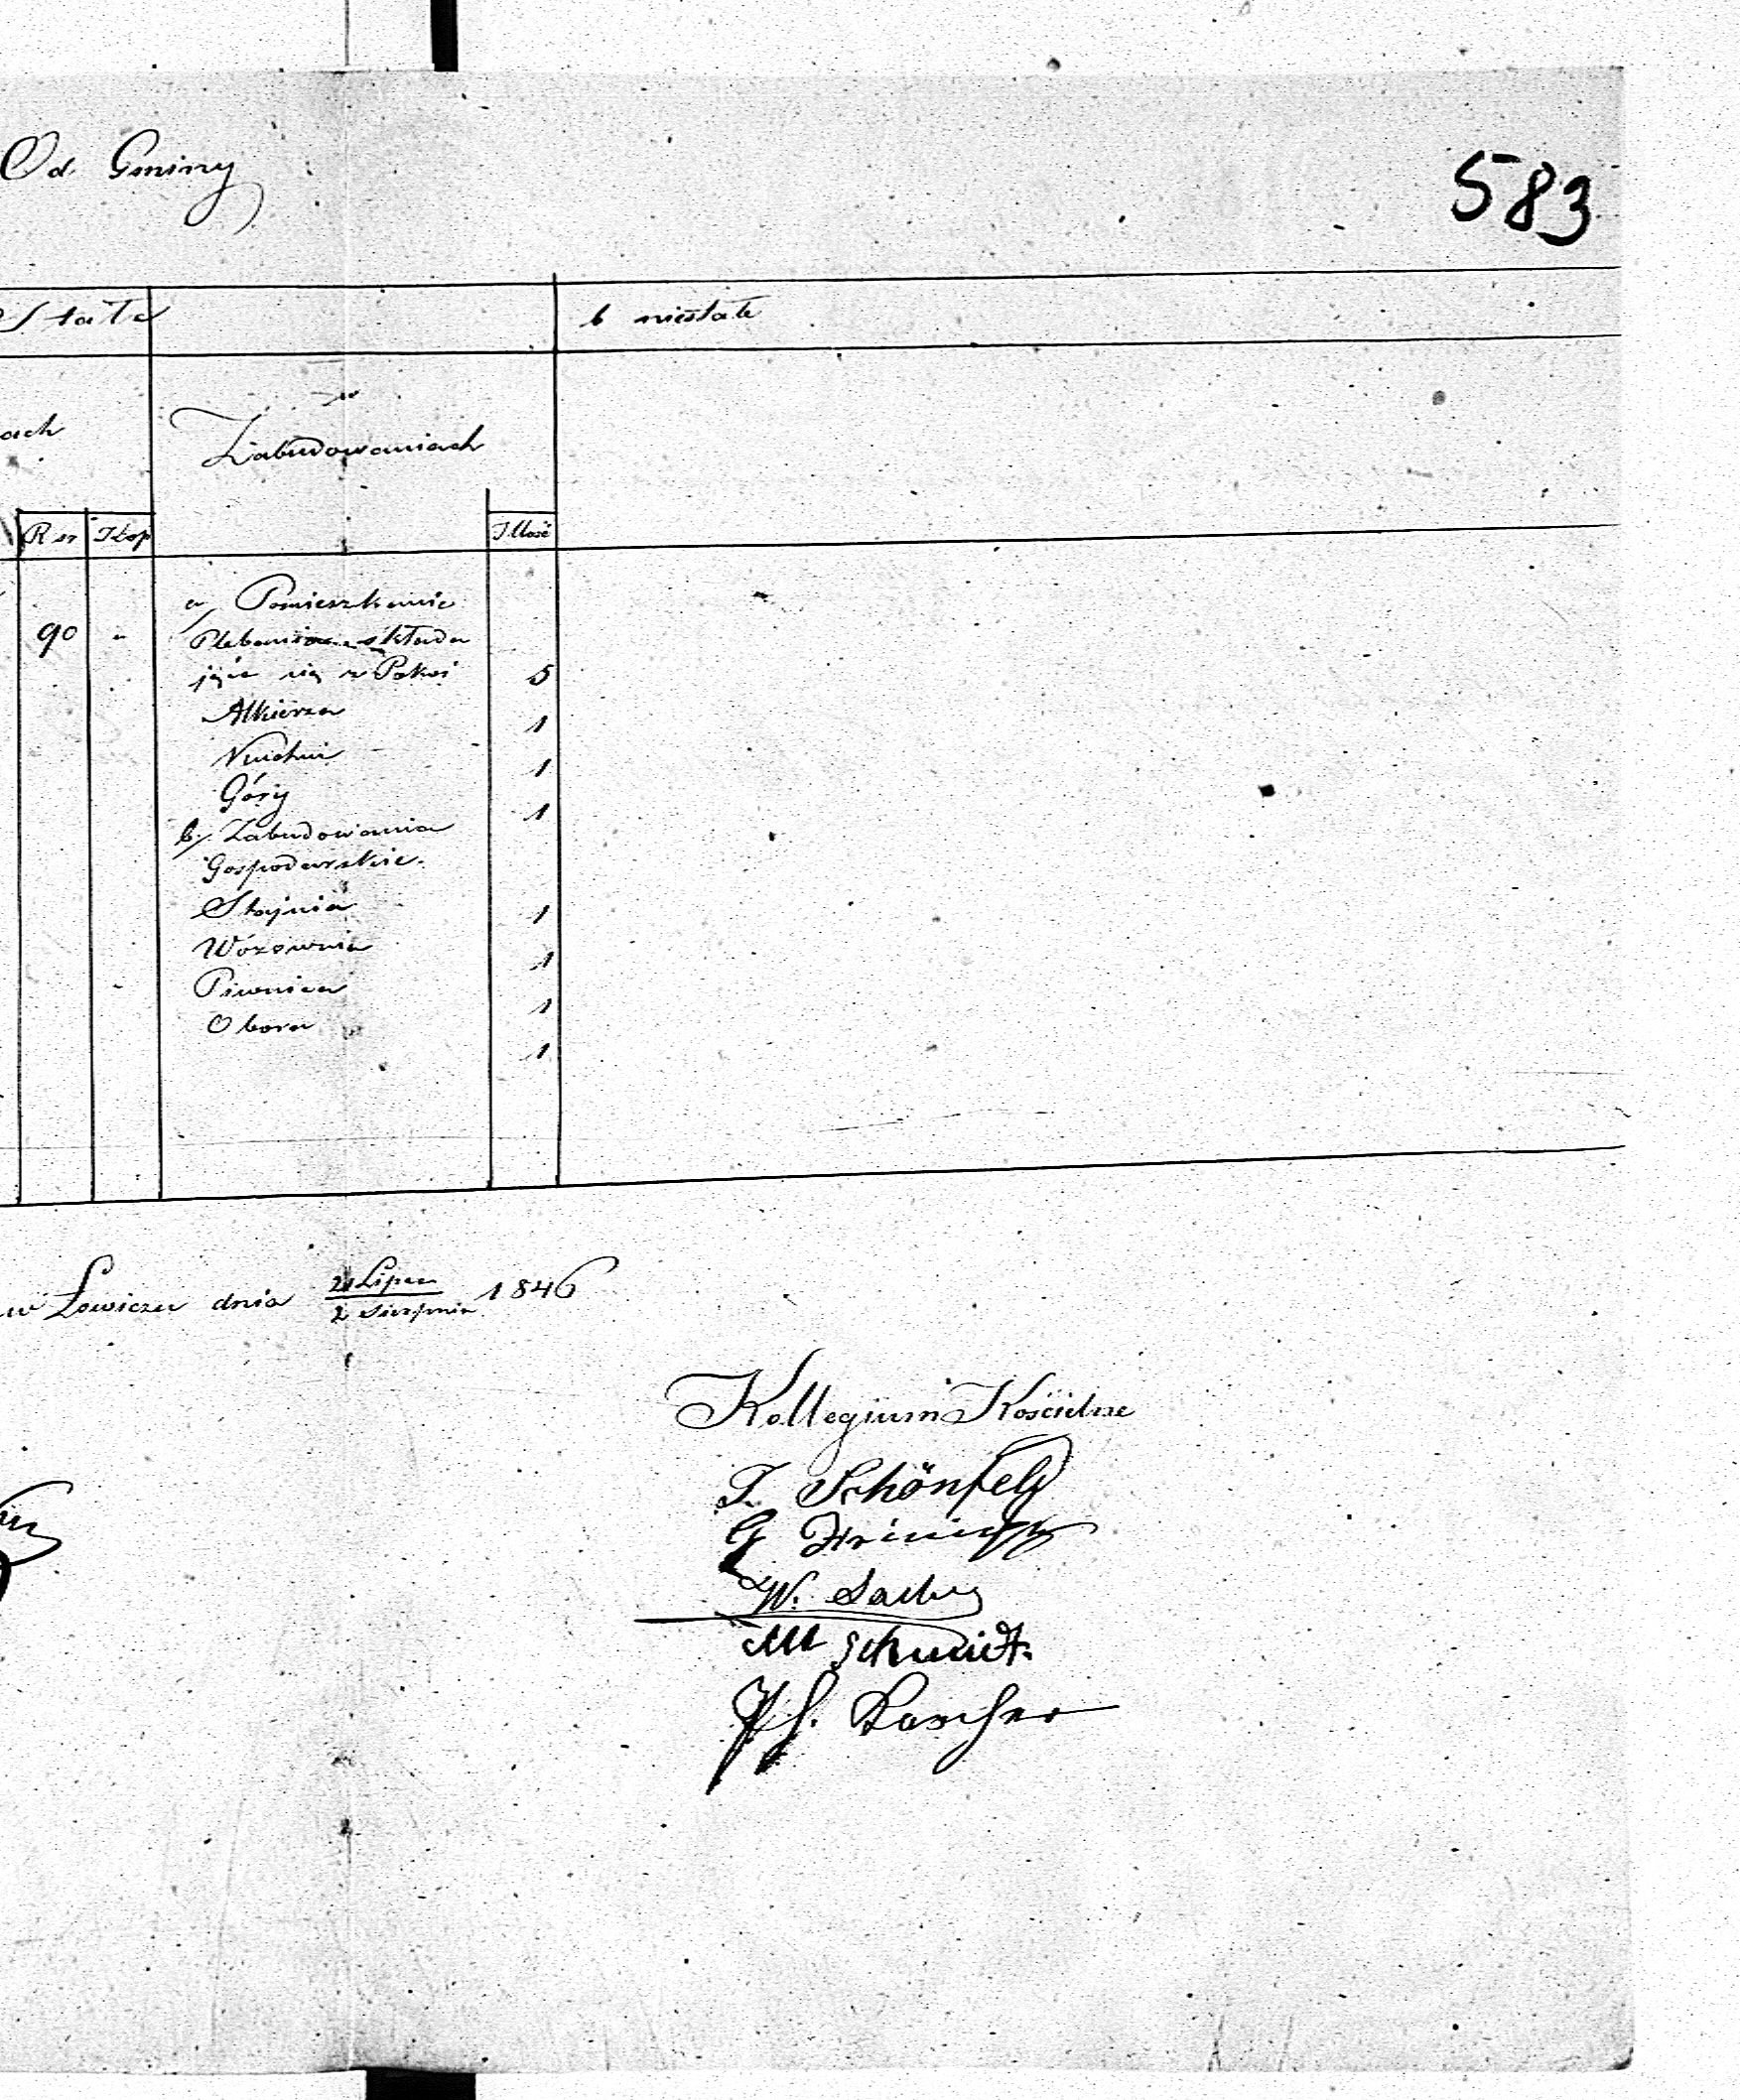 Od Gminy
583
Stałe
b niestałe
ach
w
Zabudowaniach
R sr Kop
Illość
a/ Pomieszkanie
90 " Plebania składa
jące się z Pokoi 5
Alkierza 1
Kuchni 1
Góry 1
b/ Zabudowania
Gospodarskie.
Stajnia 1
Wozownia 1
Piwnica 1
Obora 1
w Łowiczu dnia 21 Lipca / 2 Sierpnia 1846
Kollegium Kościelne
Schönfeld
G
W.
M Schmidt.